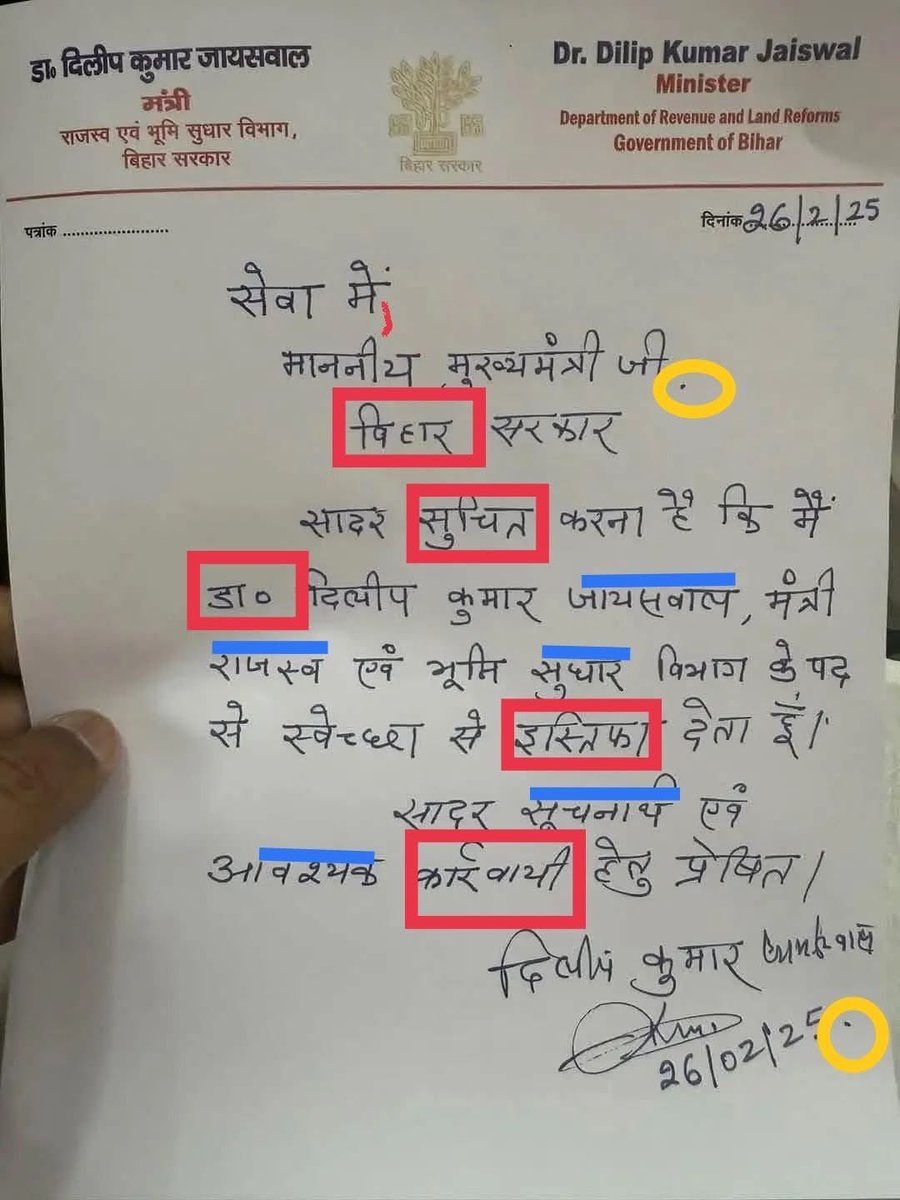 डा० दिलीप कुमार जायसवाल
मंत्री
राजस्व एवं भूमि सुधार विभाग,
बिहार सरकार
बिहार सरकार
Dr. Dilip Kumar Jaiswal
Minister
Department of Revenue and Land Reforms
Government of Bihar
पत्रांक .......................
दिनांक 26/2/25
सेवा में,
माननीय मुख्यमंत्री जी
विहार सरकार
सादर सुचित करना है कि मैं
डा० दिलीप कुमार जायसवाल, मंत्री
राजस्व एवं भूमि सुधार विभाग के पद
से स्वेच्छा से इस्तिफा देता हूँ।
सादर सूचनार्थ एवं
आवश्यक कार्रवायी हेतु प्रेषित।
दिलीप कुमार
26/02/25